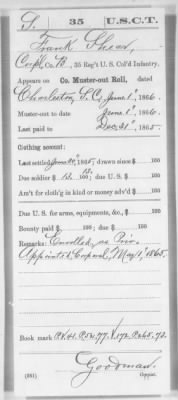 S. 35 U.S.C.T.
Frank Shaw,
Corpl, Co. B, 35 Reg't U. S. Col'd Infantry.
Appears on Co. Muster-out Roll, dated
Charleston, S.C., June 1, 1866.
Muster-out to date June 1, 1866.
Last paid to Dec. 31, 1865.
Clothing account:
Last settled 1865; drawn since $ 100
Due soldier $ 13 100; due U. S. $ 100
Am't for cloth'g in kind or money adv'd $ 100
Due U. S. for arms, equipments, &c., $ 100
Bounty paid $ 100; due $ 100
Remarks: Enrolled as Priv.
Appointed Corporal, May 1, 1865.
Book mark:
Goodman
(981) Copyist.